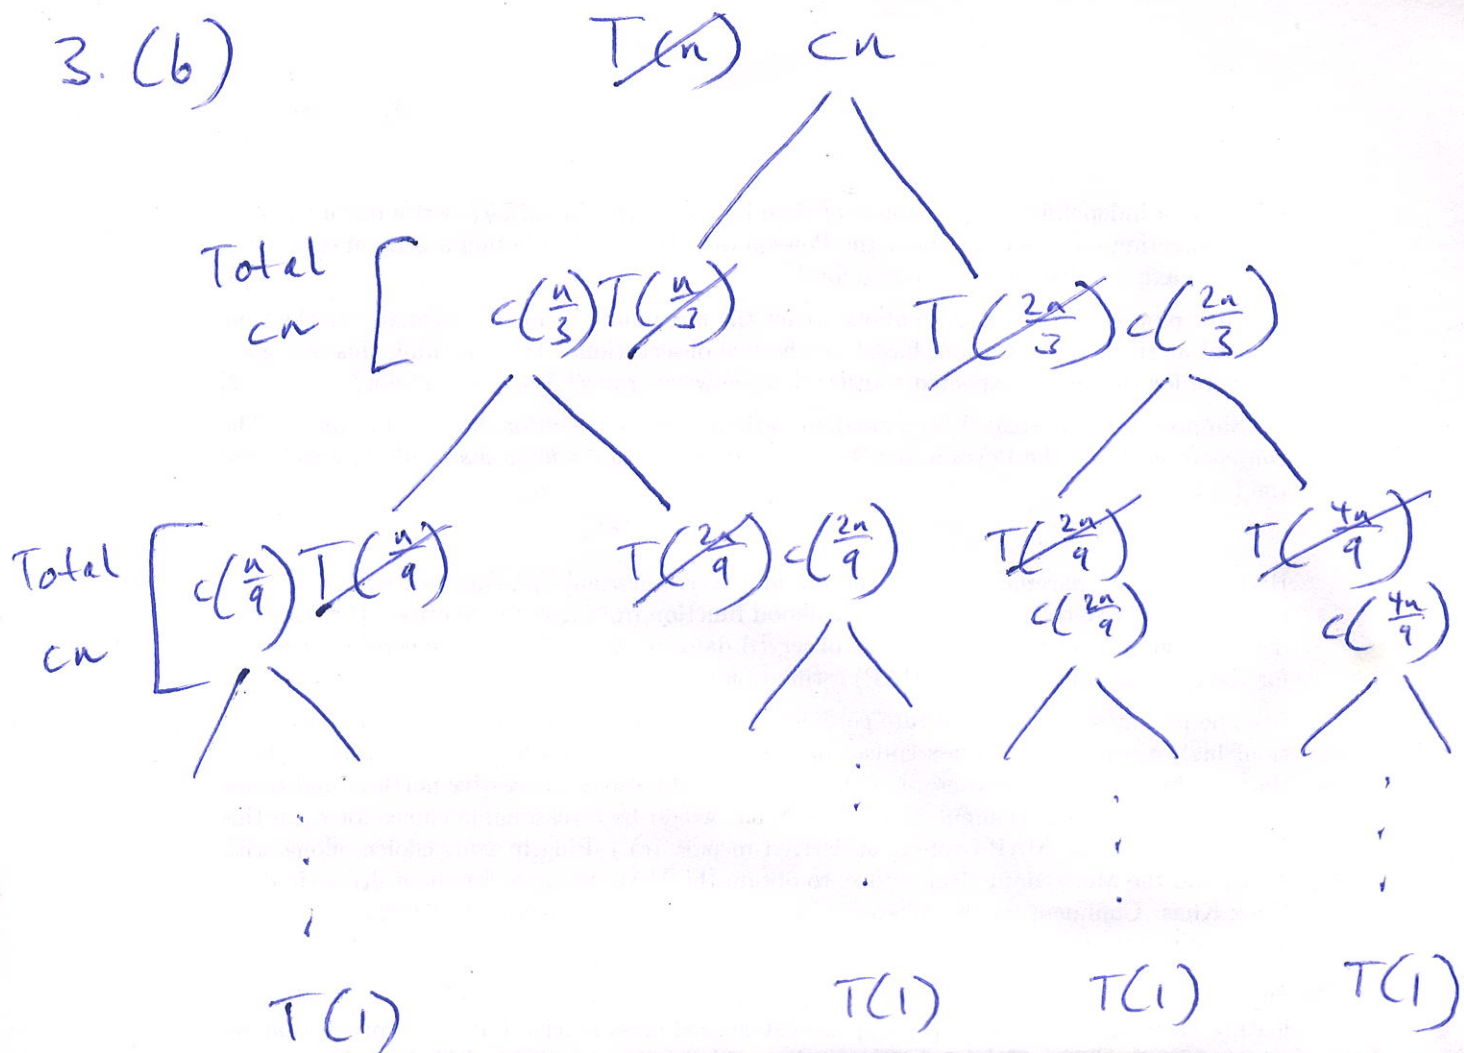 3. (b) T(n) cn
Total cn c(n/3) T(n/3) T(2n/3) c(2n/3)
Total cn c(n/9) T(n/9) T(2n/9) c(2n/9) T(2n/9) c(2n/9) T(4n/9) c(4n/9)
T(1) T(1) T(1) T(1)